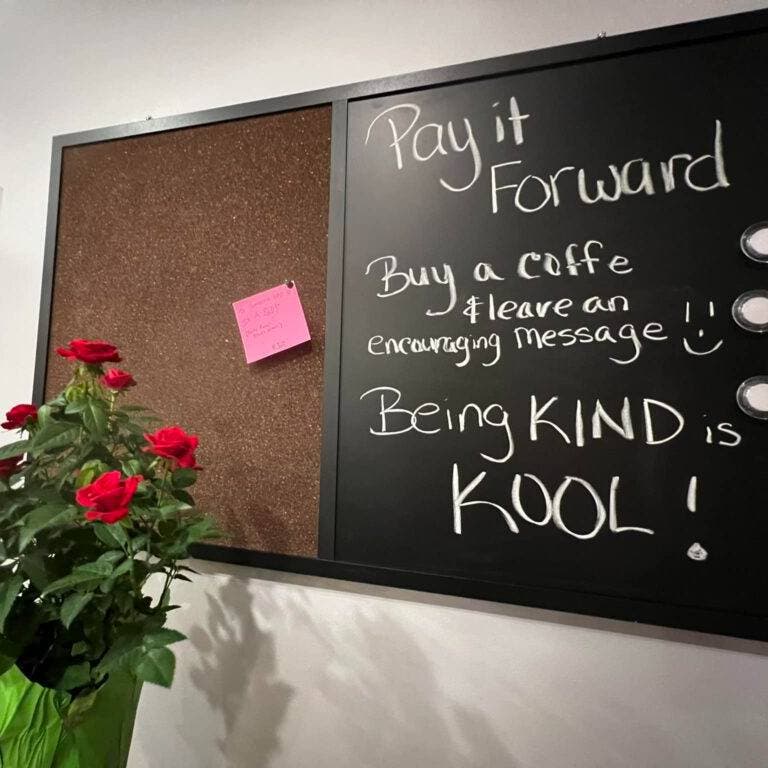 Pay it
Forward
Buy a coffe
& leave an
encouraging message
Being KIND is
KOOL!